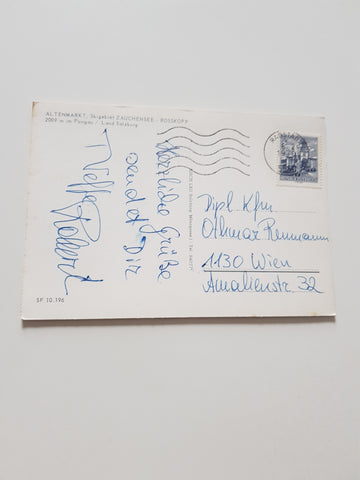 ALTENMARKT, Skigebiet ZAUCHENSEE - ROSSKOPF
2009 m im Pongau / Land Salzburg
Herzliche Grüße
sendet Dir
Neffe Robert
Dipl. Kfm
Othmar Remmann
1130 Wien
Amalienstr. 32
SP 10.196